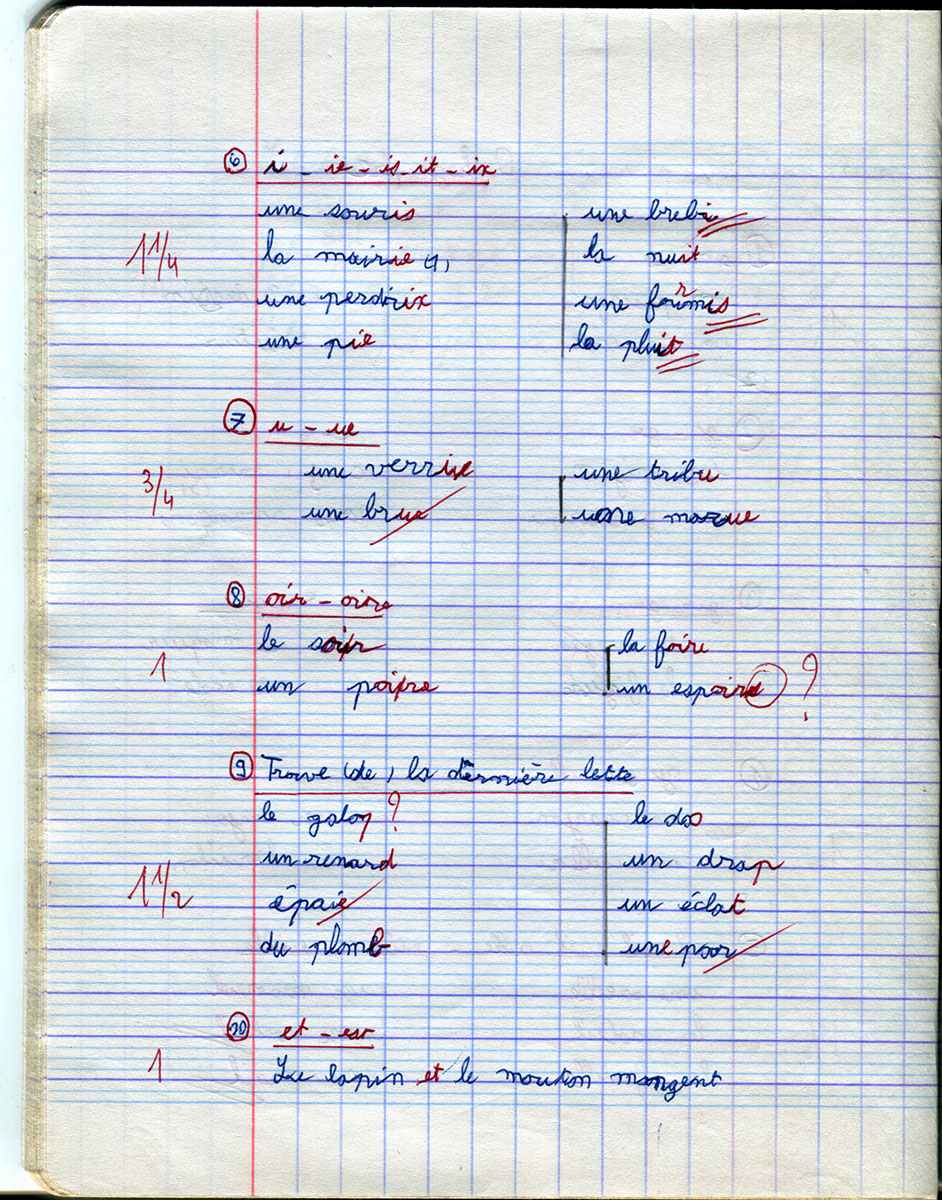 6 i - ie - is - it - ix
une souris une brebi
1 1/4 la mairie la nuit
une perdrix une fourmis
une pie la pluit
7 u - ue
3/4 une verrue une tribu
une brue une morue
8 oir - oire
le soir la foire
1 un poire un espoire ?
9 Trouve (de) la dernière lettre
le galop ? le dos
un renard un drap
1 1/2 épaie un éclat
du plomb une poor
10 et - est
1 Le lapin et le mouton mangent